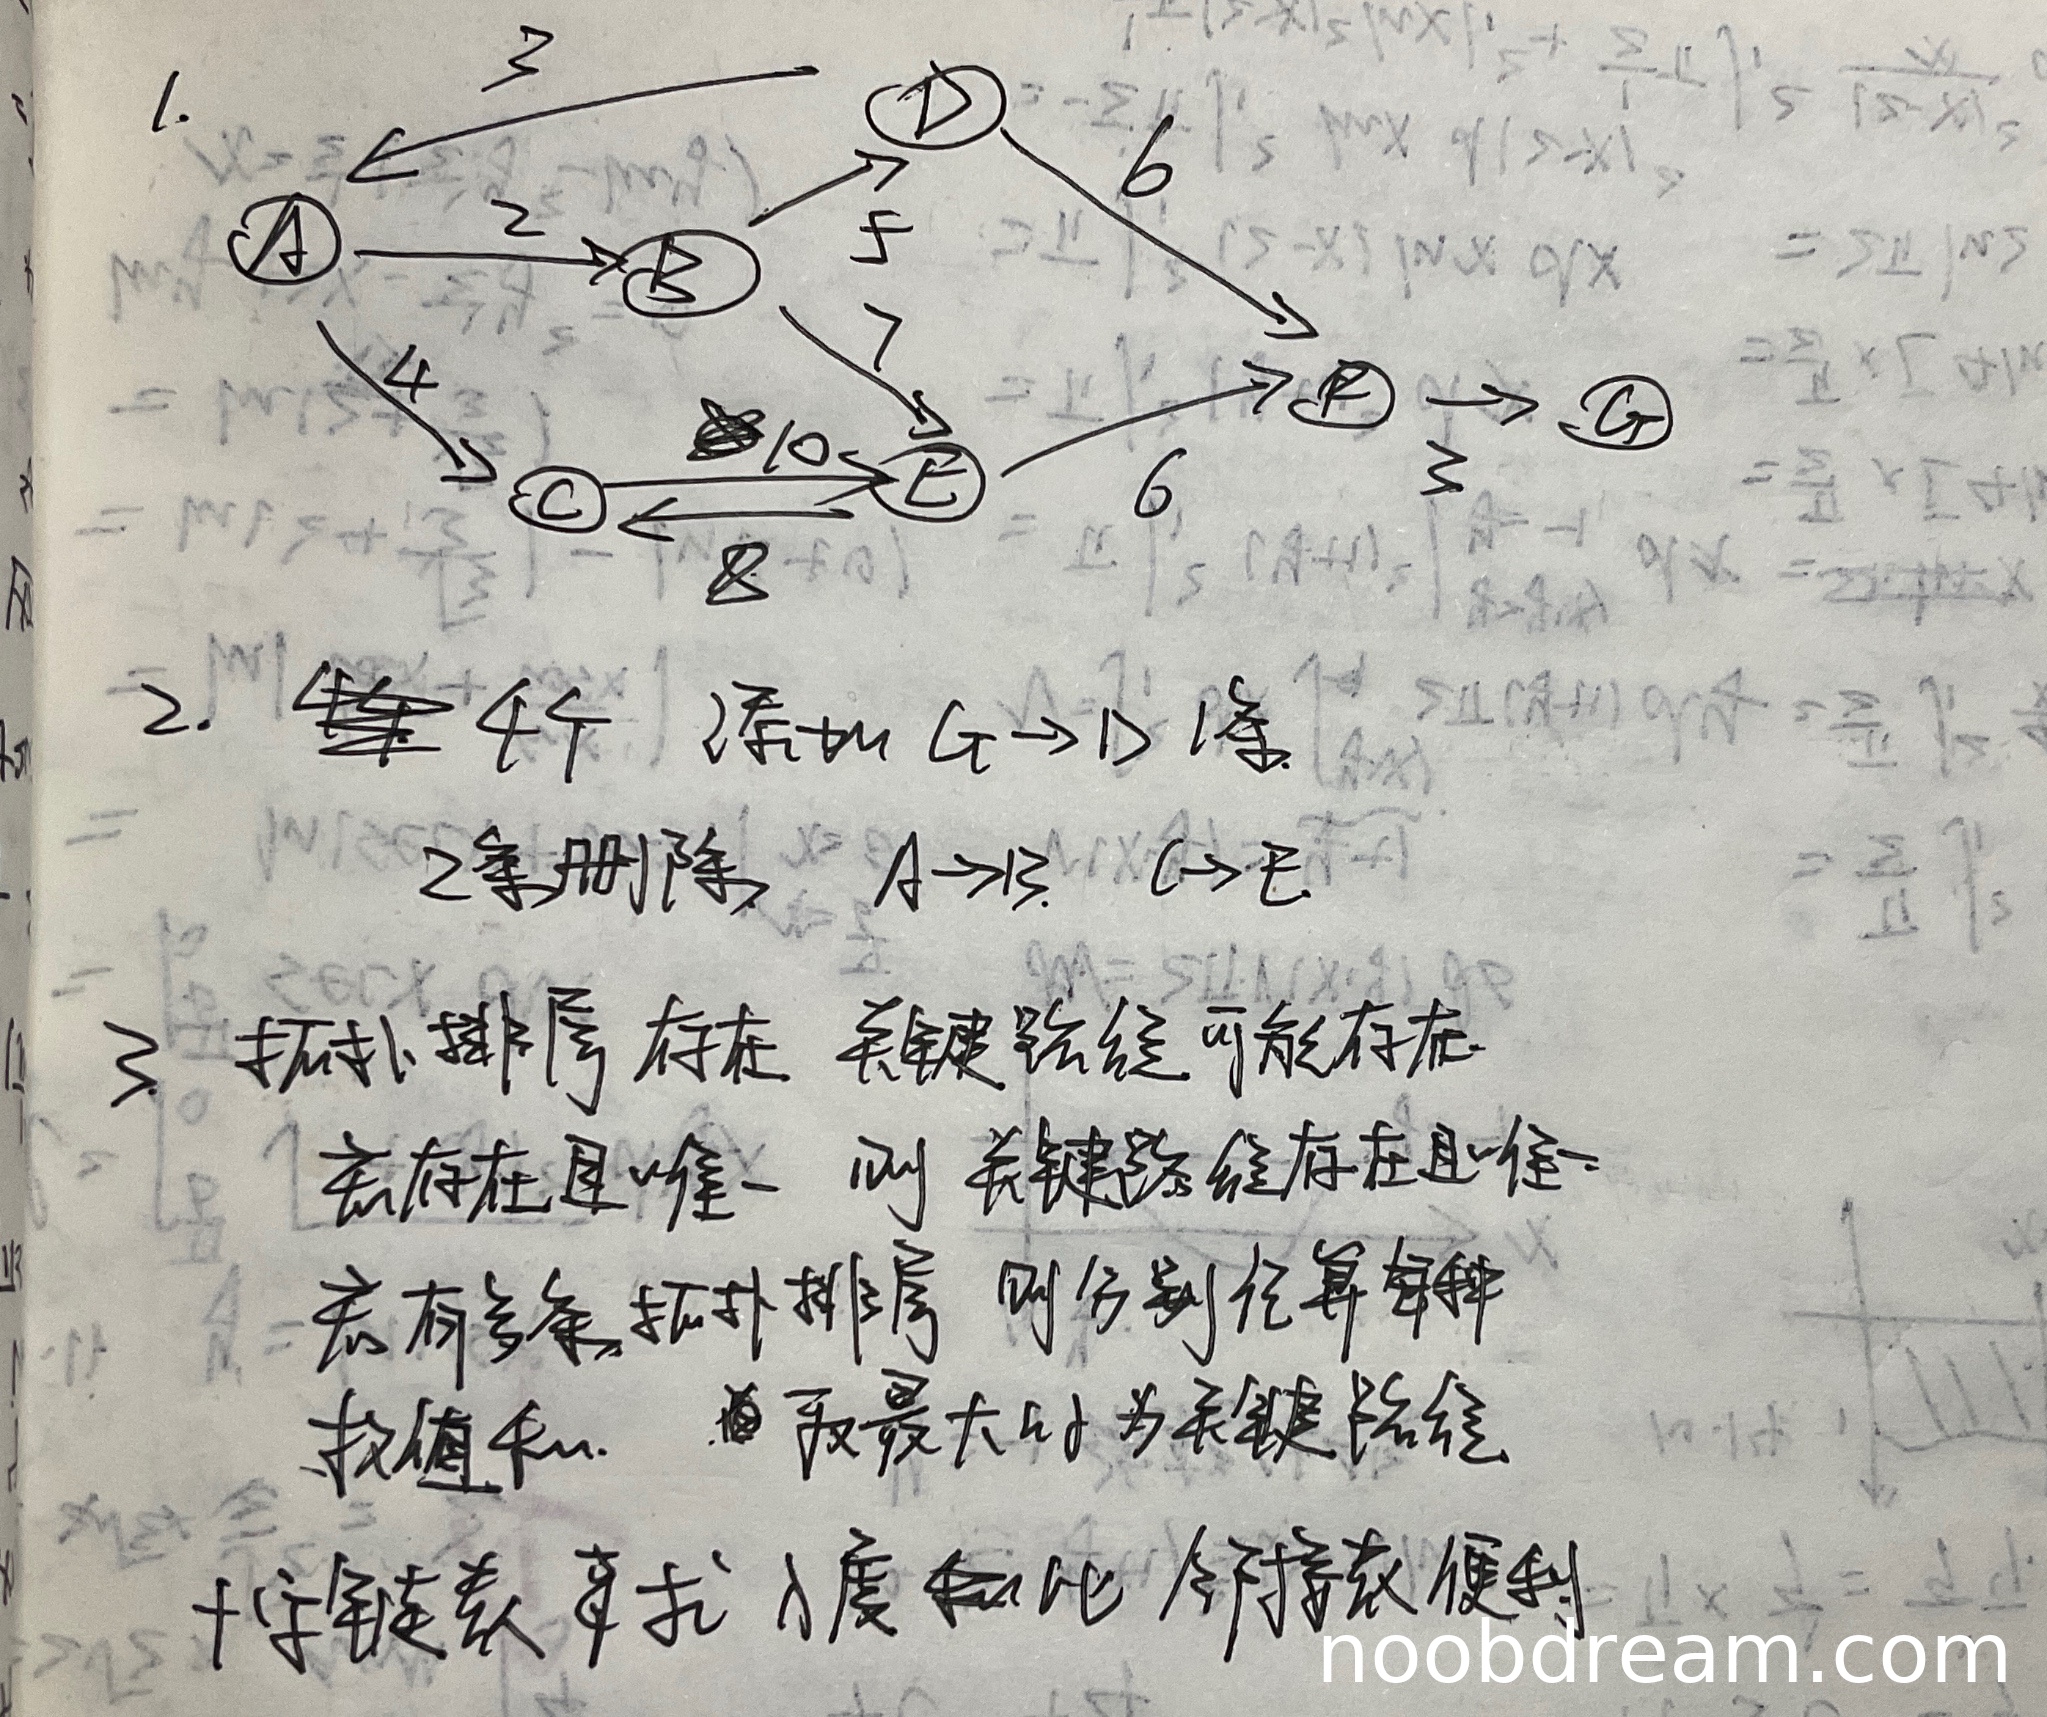 1.
3
D
6
A
2
B
5
7
4
F
G
10
C
E
3
6
8
2. 4个 添加 G→D 1条
2条删除 A→B. C→E.
3. 拓扑排序存在 关键路径可能存在.
若存在且唯一 则 关键路径存在且唯一
若有多条拓扑排序 则分别计算每种
权值和. 取最大的为关键路径
十字链表 寻找 入度 比 邻接表便利
noobdream.com